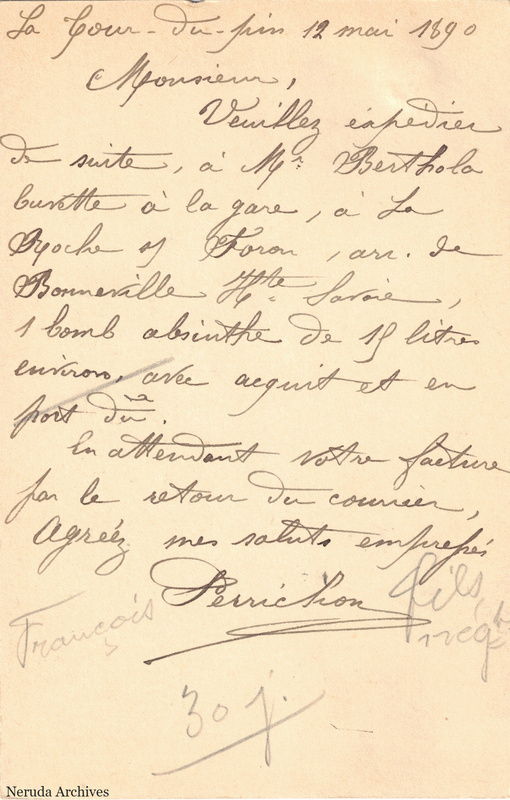 La Tour-du-pin 12 mai 1890
Monsieur,
Veuillez éxpédier
de suite, à Mr. Berthola
buvette à la gare, à La
Roche s/ Foron, arr. de
Bonneville Hte. Savoie,
1 bomb absinthe de 15 litres
environ, avec acquit et en
port dû.
En attendant votre facture
par le retour du courrier,
Agréez mes saluts empressés
Perrichon fils,
François négt
30 j.
Neruda Archives